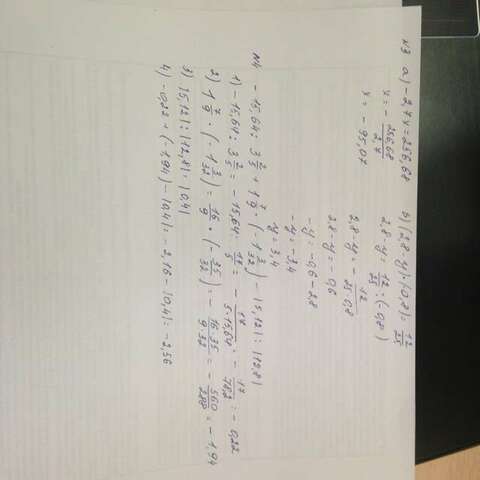 №3 а) -2,7x=256,68
x = - 256,68/2,7
x = - 95,07
б) (2,8-y)·(-0,8) = 12/25
2,8-y = 12/25 : (-0,8)
2,8-y = - 12/25·0,8
2,8-y = - 0,6
-y = -0,6-2,8
-y = -3,4
y = 3,4
№4 - 15,64 : 3 2/5 + 1 7/9 · (- 1 3/32) - |5,12| : |12,8|
1) - 15,64 : 3 2/5 = - 15,64 : 17/5 = - 17/5·15,64 = - 17/78,2 = - 0,22
2) 1 7/9 · (- 1 3/32) = 16/9 · (- 35/32) - 16·35/9·32 = - 560/288 = - 1,94
3) |5,12| : |12,8| = |0,4|
4) -0,22 + (-1,94) - |0,4| = - 2,16 - |0,4| = - 2,56